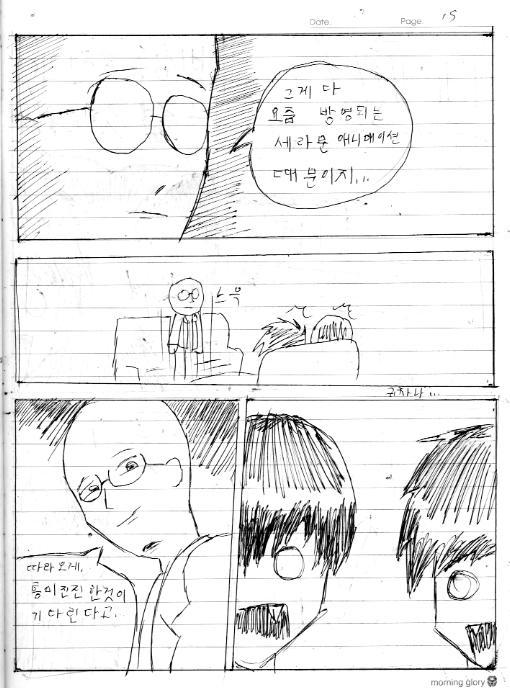 Date.
Page. 15
그게 다
요즘 방영되는
세라문 애니메이션
때문이지...
스윽
귀차나...
따라오게.
흥미진진한것이
기다린다고.
morning glory